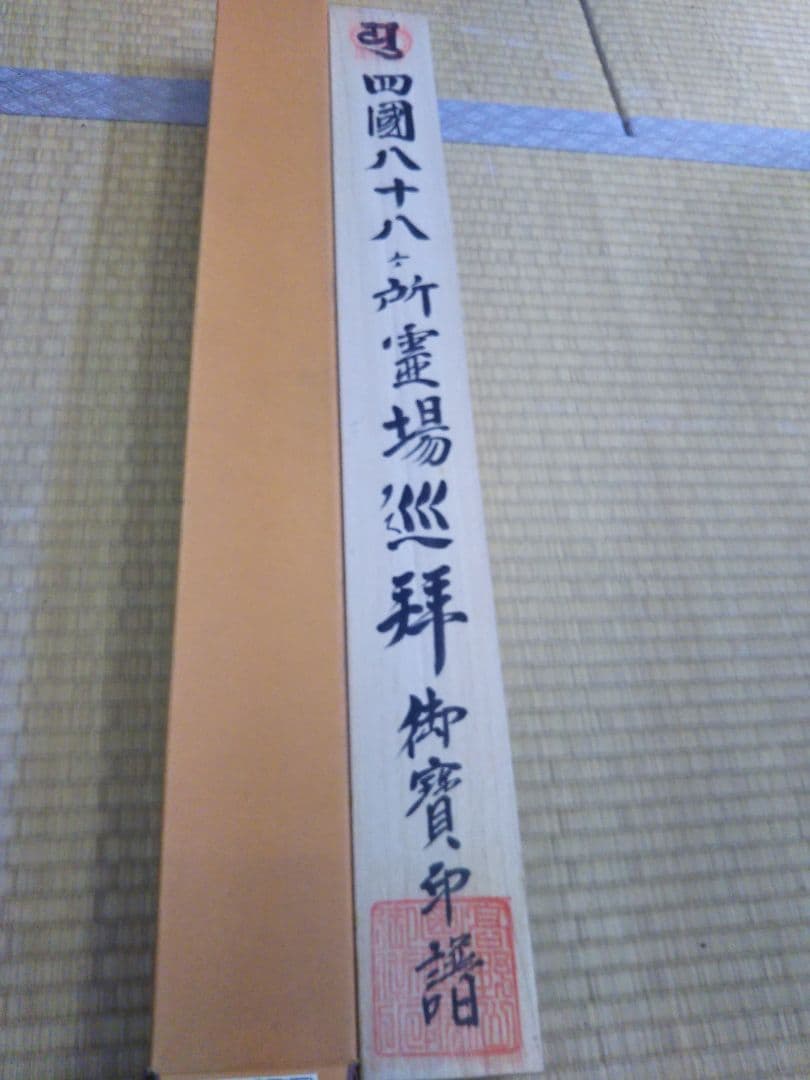 四國八十八ヶ所霊場巡拜御寶印譜